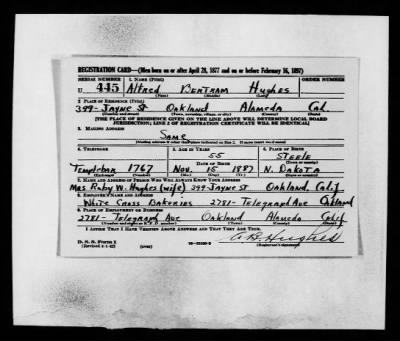 REGISTRATION CARD—(Men born on or after April 28, 1877 and on or before February 16, 1897)
SERIAL NUMBER 1. NAME (Print) ORDER NUMBER
U 445 Alfred Bertram Hughes
(First) (Middle) (Last)
2. PLACE OF RESIDENCE (Print)
399-Jayne St Oakland Alameda Cal.
(Number and street) (Town, township, village, or city) (County) (State)
[THE PLACE OF RESIDENCE GIVEN ON THE LINE ABOVE WILL DETERMINE LOCAL BOARD
JURISDICTION; LINE 2 OF REGISTRATION CERTIFICATE WILL BE IDENTICAL]
3. MAILING ADDRESS
Same
[Mailing address if other than place indicated on line 2. If same insert word same]
4. TELEPHONE 5. AGE IN YEARS 6. PLACE OF BIRTH
55 STEELE
DATE OF BIRTH (Town or county)
Templebar 1767 Nov. 15 1887 N. DAKOTA
(Exchange) (Number) (Mo.) (Day) (Yr.) (State or country)
7. NAME AND ADDRESS OF PERSON WHO WILL ALWAYS KNOW YOUR ADDRESS
Mrs Ruby W. Hughes (wife) 399-Jayne St Oakland, Calif
8. EMPLOYER'S NAME AND ADDRESS
White Cross Bakeries 2781-Telegraph Ave Oakland
9. PLACE OF EMPLOYMENT OR BUSINESS
2781-Telegraph Ave Oakland Alameda Calif
(Number and street or R. F. D. number) (Town) (County) (State)
I AFFIRM THAT I HAVE VERIFIED ABOVE ANSWERS AND THAT THEY ARE TRUE.
D. S. S. Form 1
(Revised 4-1-42) (over) A.B. Hughes
(Registrant's signature)